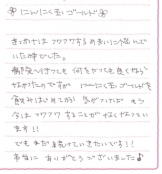 にんにく玉ゴールド
きっかけはフワフワするめまいに悩んで
いた時でした。
病院へ行っても何をやっても良くなら
なかったのですが にんにく玉ゴールドを
飲みはじめてから 気がつけば もう
今はフワフワすることがなくなってい
ます!!
でもまだ続けていきたいです!!
本当に ありがとうございました♪